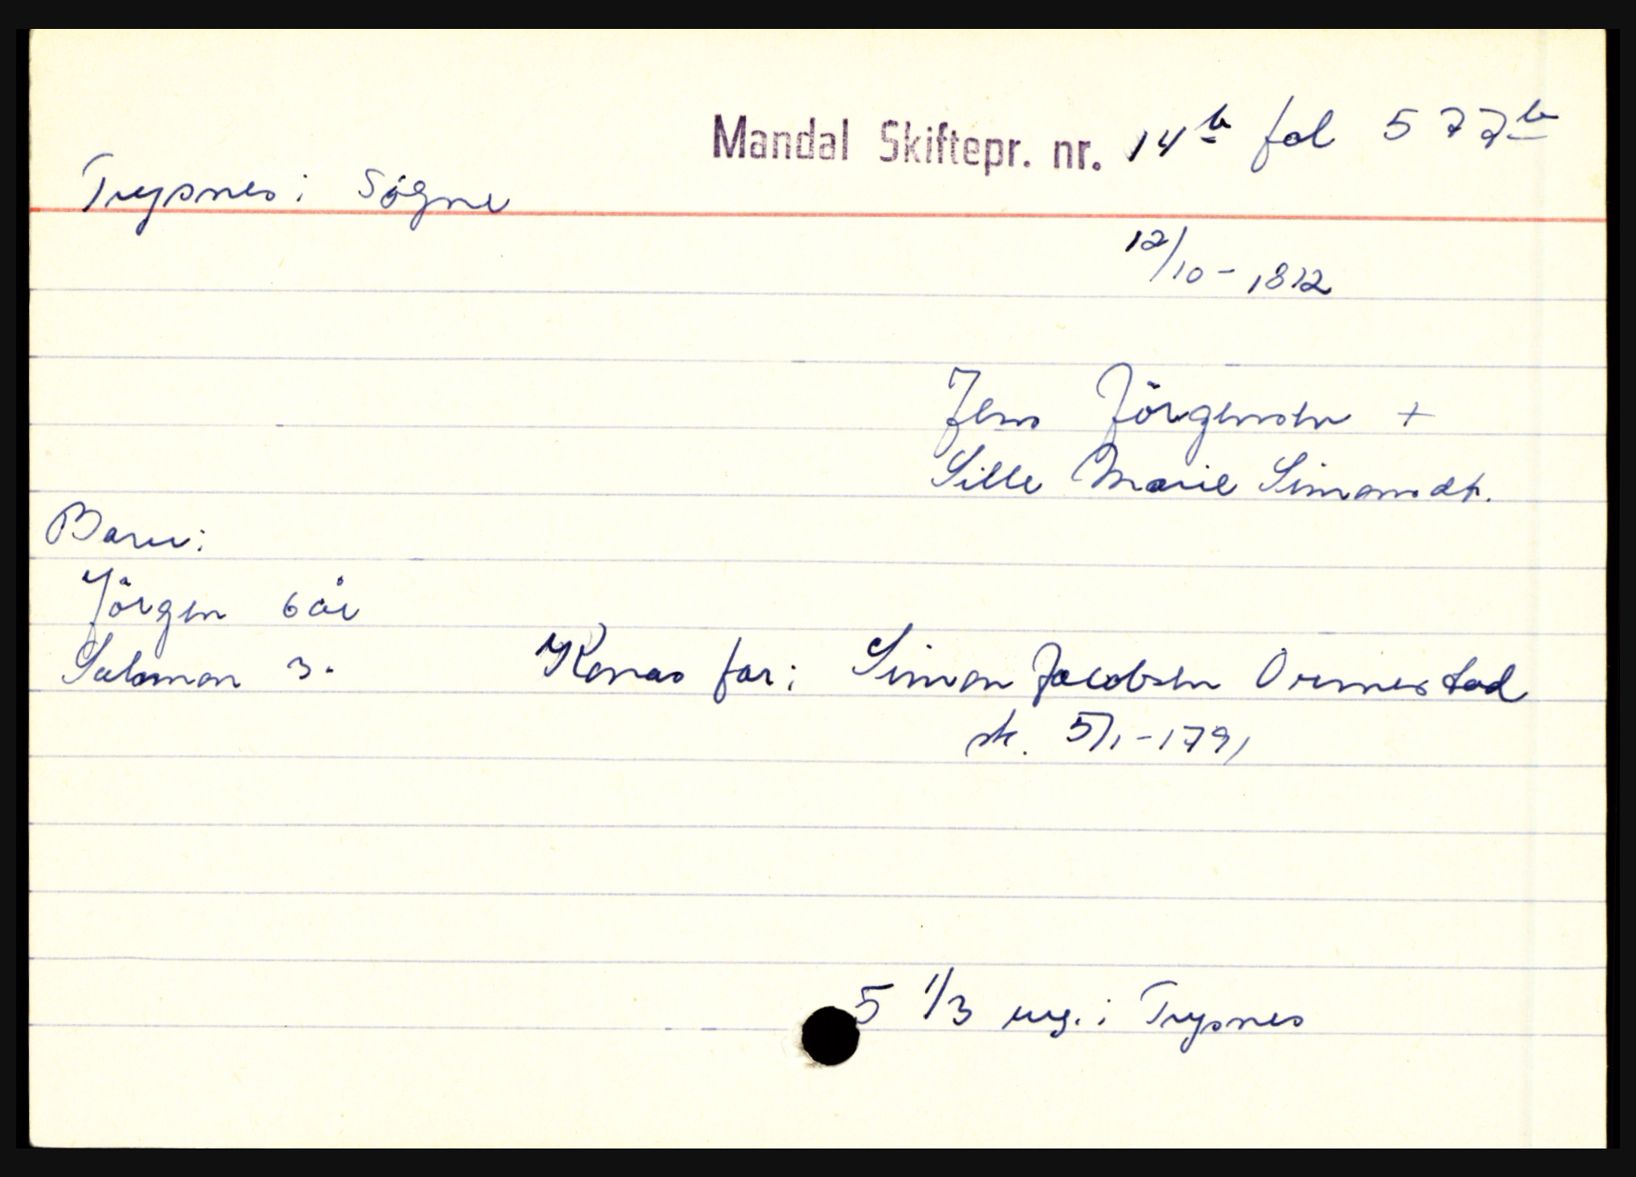 Mandal Skiftepr. nr. 14b fol 577b
Trysnes i Søgne
12/10-1812
Jens Jörgensen +
Sille Marie Simonsdt.
Barn:
Jörgen 6 år
Salomon 3 -
Konas far: Simon Jacobsen Ormestad
sk. 5/1-1791
5 1/3 eng. i Trysnes